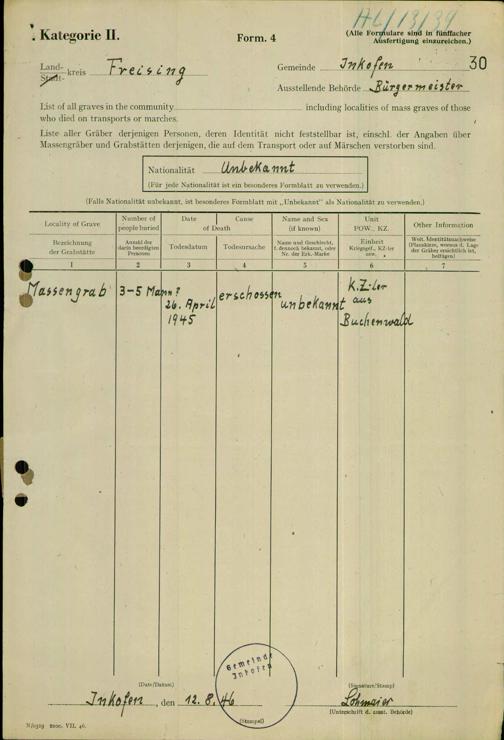 Kategorie II.
Form. 4
HL/13/39
(Alle Formulare sind in fünffacher
Ausfertigung einzureichen.)
Land-
Stadt-
kreis Freising
Gemeinde Inkofen 30
Ausstellende Behörde Bürgermeister
List of all graves in the community including localities of mass graves of those
who died on transports or marches.
Liste aller Gräber derjenigen Personen, deren Identität nicht feststellbar ist, einschl. der Angaben über
Massengräber und Grabstätten derjenigen, die auf dem Transport oder auf Märschen verstorben sind.
Nationalität Unbekannt
(Für jede Nationalität ist ein besonderes Formblatt zu verwenden.)
(Falls Nationalität unbekannt, ist besonderes Formblatt mit „Unbekannt" als Nationalität zu verwenden.)
Locality of Grave
Number of
people buried
Date
Cause
of Death
Name and Sex
(if known)
Unit
POW., KZ.
Other Information
Bezeichnung
der Grabstätte
Anzahl der
darin beerdigten
Personen
Todesdatum
Todesursache
Name und Geschlecht,
f. dennoch bekannt, oder
Nr. der Erk.-Marke
Einheit
Kriegsgef., KZ-ler
usw.
Weit. Identitätsnachweise
(Planskizze, woraus d. Lage
der Gräber ersichtlich ist,
beifügen)
1 2 3 4 5 6 7
Massengrab
3-5 Mann?
26. April
1945
erschossen
unbekannt
K.Z-ler
aus
Buchenwald
(Date/Datum)
(Signature/Stamp)
Inkofen, den 12.8.46
Gemeinde
Inkofen
Lohmaier
(Unterschrift d. ausst. Behörde)
(Stempel)
VII. 46.